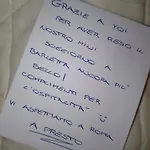 GRAZIE A VOI
PER AVER RESO IL
NOSTRO MINI
SOGGIORNO A
BARLETTA ANCORA PIU'
BELLO!
COMPLIMENTI PER
L'OSPITALITA'
VI ASPETTIAMO A ROMA
A PRESTO